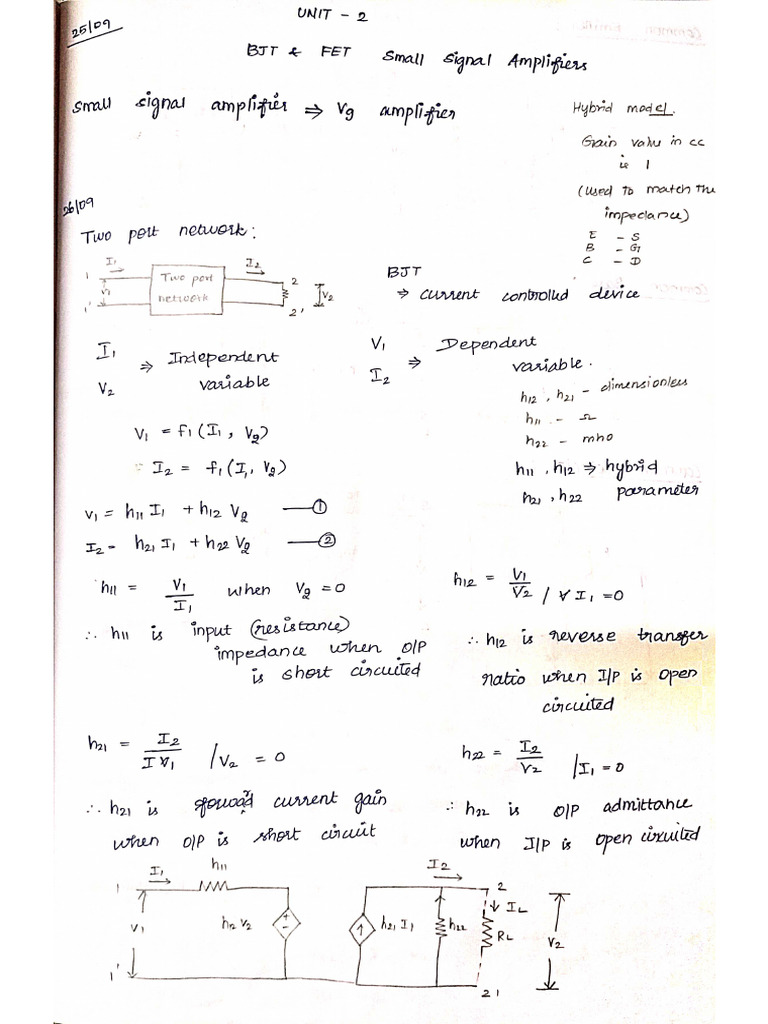 25/09
UNIT - 2
BJT & FET Small Signal Amplifiers
Small signal amplifier ⇒ Vg amplifier
Hybrid model.
Gain value in CC
is 1
(used to match the
impedance)
E - S
B - G
C - D
26/09
Two port network:
I1
I2
1
2
V1
Two port
network
V2
1'
2'
BJT
⇒ current controlled device
I1
V2
⇒ Independent
variable
V1
I2
⇒ Dependent
variable.
h12, h21 - dimensionless
h11 - Ω
h22 - mho
h11, h12 ⇒ hybrid
h21, h22 parameter
V1 = f1(I1, V2)
I2 = f1(I1, V2)
V1 = h11 I1 + h12 V2 —— ①
I2 = h21 I1 + h22 V2 —— ②
h11 = V1/I1 when V2 = 0
∴ h11 is input (resistance)
impedance when O/P
is short circuited
h12 = V1/V2 / I1 = 0
∴ h12 is reverse transfer
ratio when I/P is open
circuited
h21 = I2/I1 / V2 = 0
∴ h21 is forward current gain
when O/P is short circuit
h22 = I2/V2 / I1 = 0
∴ h22 is O/P admittance
when I/P is open circuited
I1
h11
I2
1
2
V1
h12 V2
h21 I1
h22
IL
RL
V2
1'
21